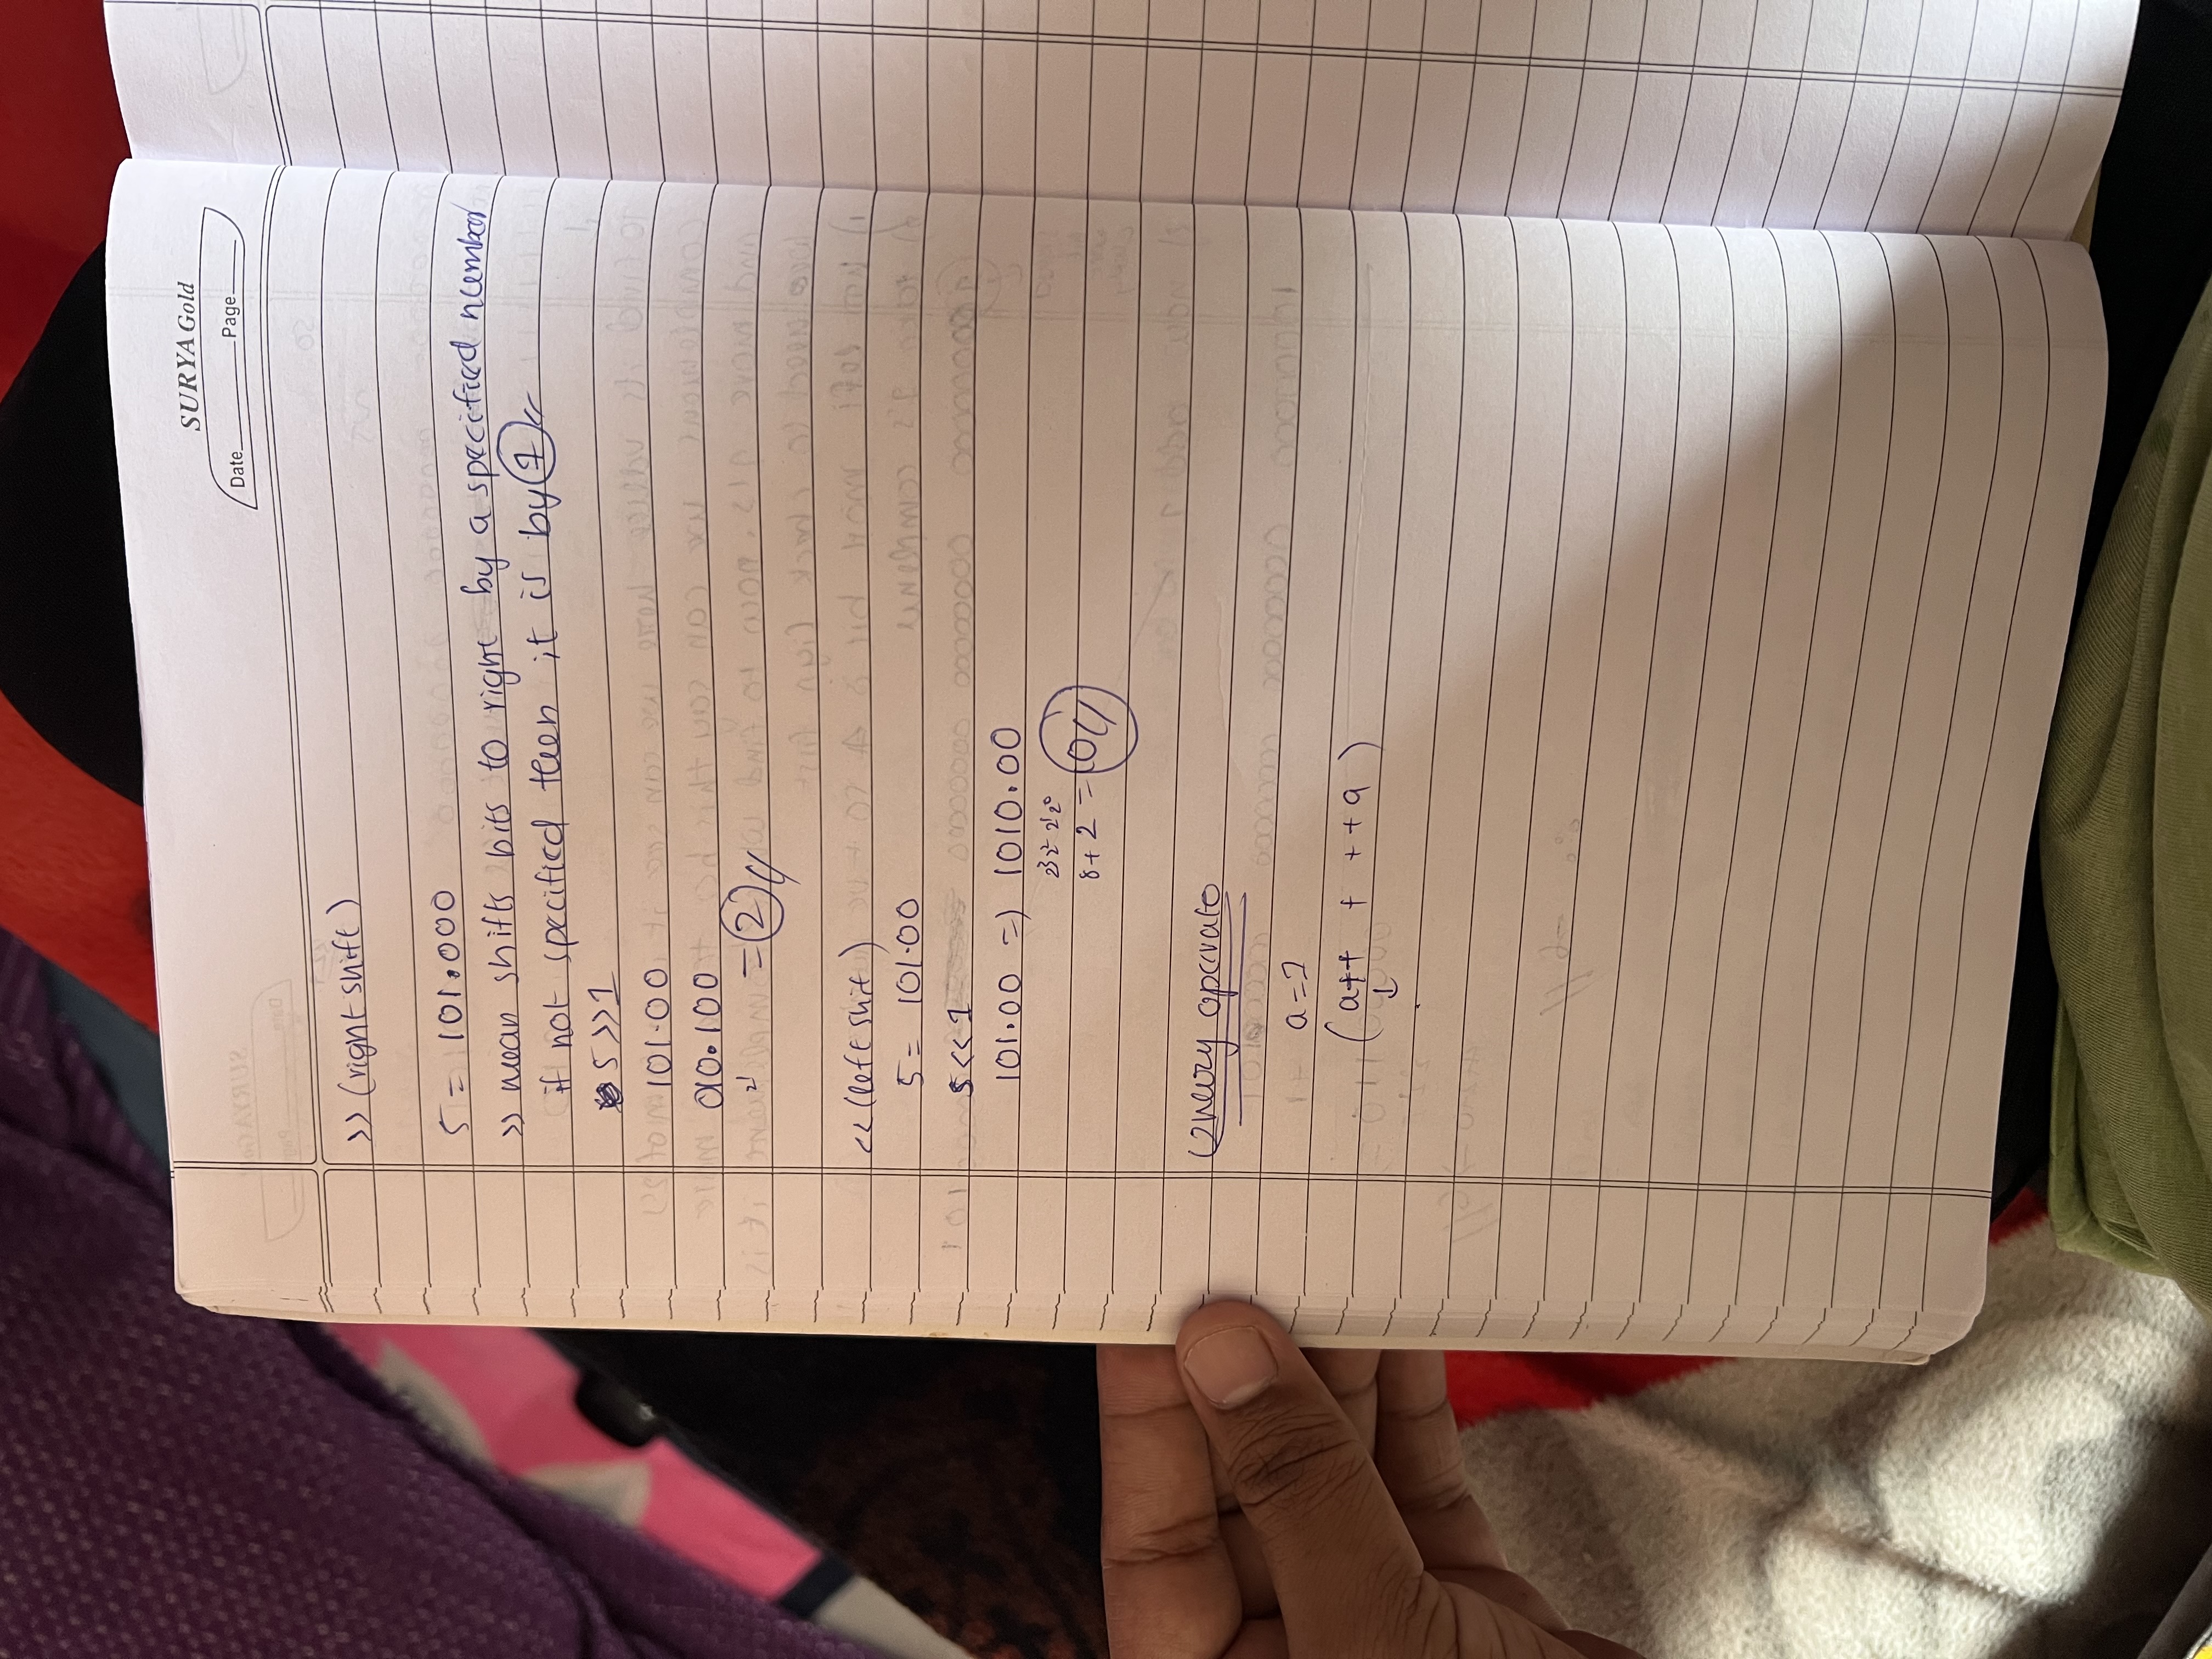 SURYA Gold
Date Page
>> (right shift)
5 = 101.000
>> mean shifts bits to right by a specified number
if not specified then it is by 1
5 >> 1
101.00
010.100
2¹ = 2
<< (left shit)
5 = 101.00
5 << 1
101.00 => 1010.00
2³ 2² 2¹ 2⁰
8 + 2 =
operato
a = 1
( a++ + ++a )
↓